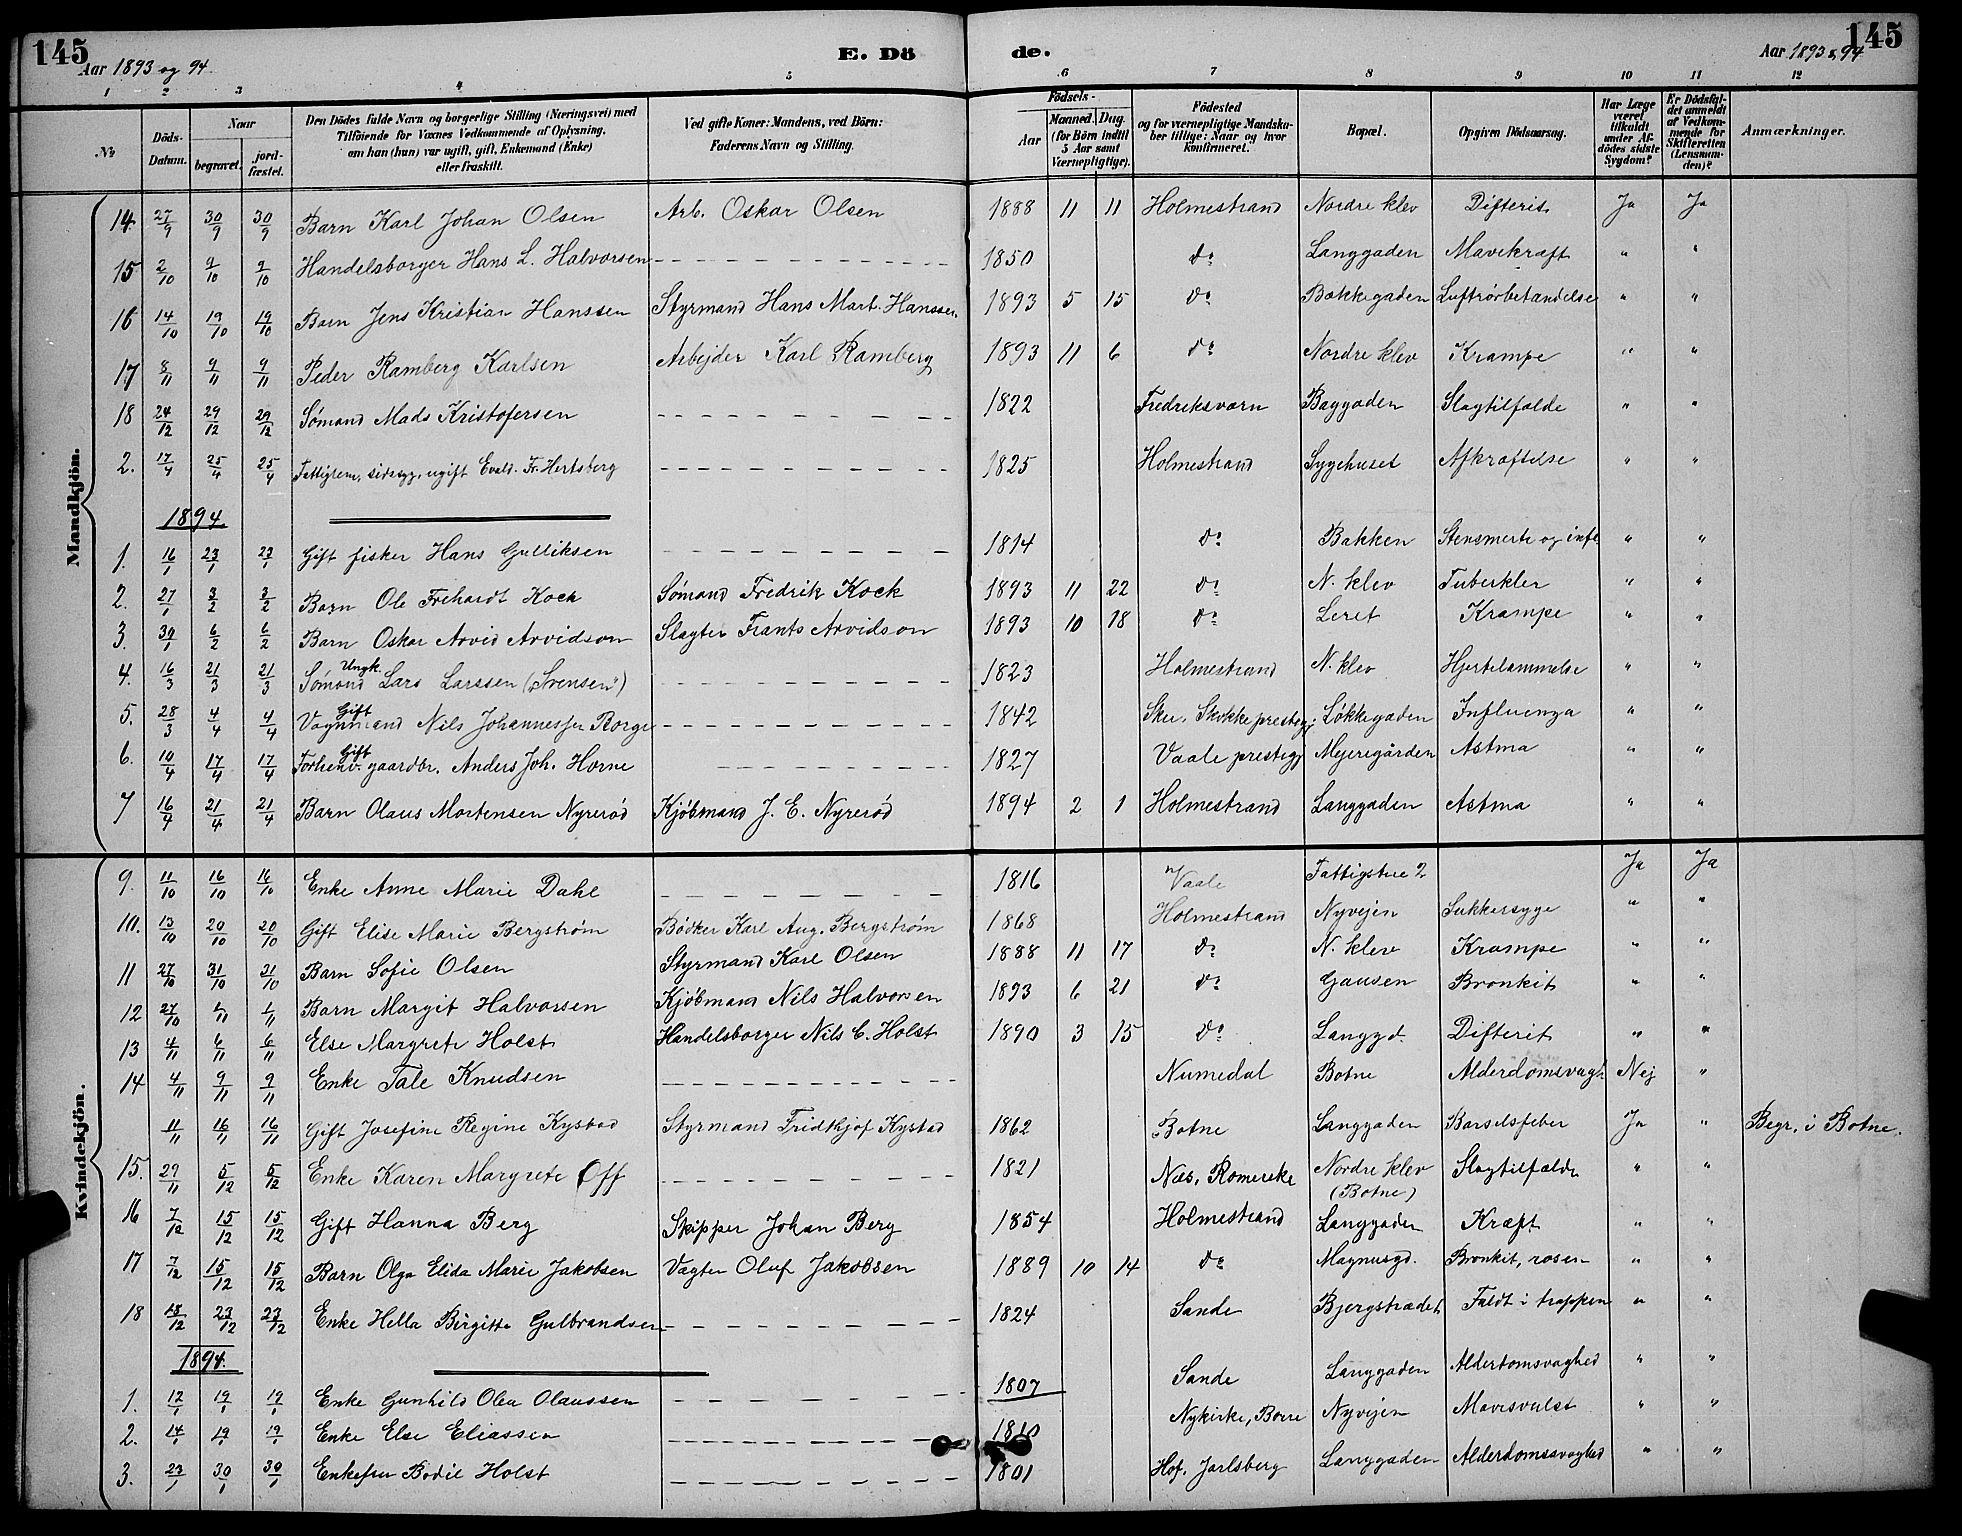 145 Aar 1893 og 94. E. Dö de. Aar 1893 & 94 145
1 2 3 4 5 6 7 8 9 10 11 12
No. Döds-Datum. Naar begravet. jordfæstet. Den Dödes fulde Navn og borgerlige Stilling (Næringsvei) med Tilföiende for Voxnes Vedkommende af Oplysning, om han (hun) var ugift, gift, Enkemand (Enke) eller fraskilt. Ved gifte Koner: Mandens, ved Börn: Faderens Navn og Stilling. Födsels- Aar Maaned. Dag. (for Börn indtil 5 Aar samt Værnepligtige). Födested og for værnepligtige Mandskaber tillige: Naar og hvor konfirmeret. Bopæl. Opgiven Dödsaarsag. Har Læge været tilkaldt under Afdödes sidste Sygdom? Er Dödsfaldet anmeldt af Vedkommende for Skifteretten (Lensmanden)? Anmærkninger.
Mandkjön.
14. 27/9 30/9 30/9 Barn Karl Johan Olsen Arb. Oskar Olsen 1888 11 11 Holmestrand Nordre klev Difterit Ja Ja
15 2/10 9/10 9/10 Handelsborger Hans L. Halvorsen 1850 do Langgaden Mavekræft " "
16 14/10 19/10 19/10 Barn Jens Kristian Hanssen Styrmand Hans Mart. Hanssen 1893 5 15 do Bækkegaden Luftrørbetændelse " "
17 8/11 9/11 9/11 Peder Ramberg Karlsen Arbejder Karl Ramberg 1893 11 6 do Nordre klev Krampe " "
18 24/12 29/12 29/12 Sømand Mads Kristofersen 1822 Fredriksværn Baggaden Slagtilfælde " "
2. 17/4 25/4 25/4 Fattiglem, sindssyg, ugift Evald. Fr. Hertsberg 1825 Holmestrand Sygehuset Afkræftelse " "
1894.
1. 16/1 23/1 23/1 Gift fisker Hans Gulliksen 1814 do Bakken Stensmerte og infl. " "
2. 27/1 3/2 3/2 Barn Ole Frehardt Koch Sømand Fredrik Kock 1893 11 22 do N. klev Tuberkler " "
3. 30/1 6/2 6/2 Barn Oskar Arvid Arvidson Slagter Frants Arvidson 1893 10 18 do Leret Krampe " "
4. 16/3 21/3 21/3 Ungk. Sømand Lars Larssen ("Svensen") 1823 Holmestrand N. klev Hjertelammelse " "
5. 28/3 4/4 4/4 Gift Vognmand Nils Johannessen Borge 1842 Sker. Influenza Løkkegaden " "
6. 10/4 17/4 17/4 Gift Forhenv. gaardbr. Anders Joh. Horne 1827 Vaale prestegj Mejeregården Astma " "
7 16/4 21/4 21/4 Barn Olaus Mortensen Nyrerød Kjøbmand J. E. Nyrerød 1894 2 1 Holmestrand Langgaden Astma " "
Kvindekjön.
9. 11/10 16/10 16/10 Enke Anne Marie Dahl 1816 Vaale Fattigstue 2 Ja Ja
10. 13/10 20/10 20/10 Gift Elise Marie Bergstrøm Bødker Karl Aug. Bergstrøm 1868 Holmestrand Nyvejen Sukkersyge " "
11 27/10 31/10 31/10 Barn Sofie Olsen Styrmand Karl Olsen 1888 11 17 do N. klev Krampe " "
12 27/10 1/11 1/11 Barn Margit Halvorsen Kjøbmand Nils Halvorsen 1893 6 21 do Gausen Bronkit " "
13 4/11 6/11 6/11 Else Margrete Holst Handelsborger Nils C. Holst 1890 3 15 do Langgd. Difterit " "
14 4/11 9/11 9/11 Enke Tale Knudsen Numedal Botne Alderdomsvagh. Nej "
11/11 16/11 16/11 Gift Josefine Regine Kystad Styrmand Fridtjof Kystad 1862 Botne Langgaden Barselsfeber Ja " Begr. i Botne.
15. 29/11 5/12 5/12 Enke Karen Margrete Off 1821 Næs, Romerike Nordre klev (Botne) Slagtilfælde " "
16 7/12 15/12 15/12 Gift Hanna Berg Skipper Johan Berg 1854 Holmestrand Langgaden Kræft " "
17 7/12 15/12 15/12 Barn Olga Elida Marie Jakobsen Vægter Oluf Jakobsen 1889 10 14 do Magnusgd. Bronkit, rosen " "
18 18/12 23/12 23/12 Enke Hella Birgitte Gulbrandsen 1824 Sande Bjergstrædet Faldt i trappen " "
1894.
1. 12/1 19/1 19/1 Enke Gunhild Olea Olaussen 1807 Sande Langgaden Alderdomsvaghed " "
2. 14/1 19/1 19/1 Enke Else Eliassen 1810 Nykirke, Borre Nyvejen Mavesvulst " "
3. 23/1 30/1 30/1 Enkefru Bodil Holst 1801 Hof, Jarlsberg Langgaden Alderdomssvaghed " "